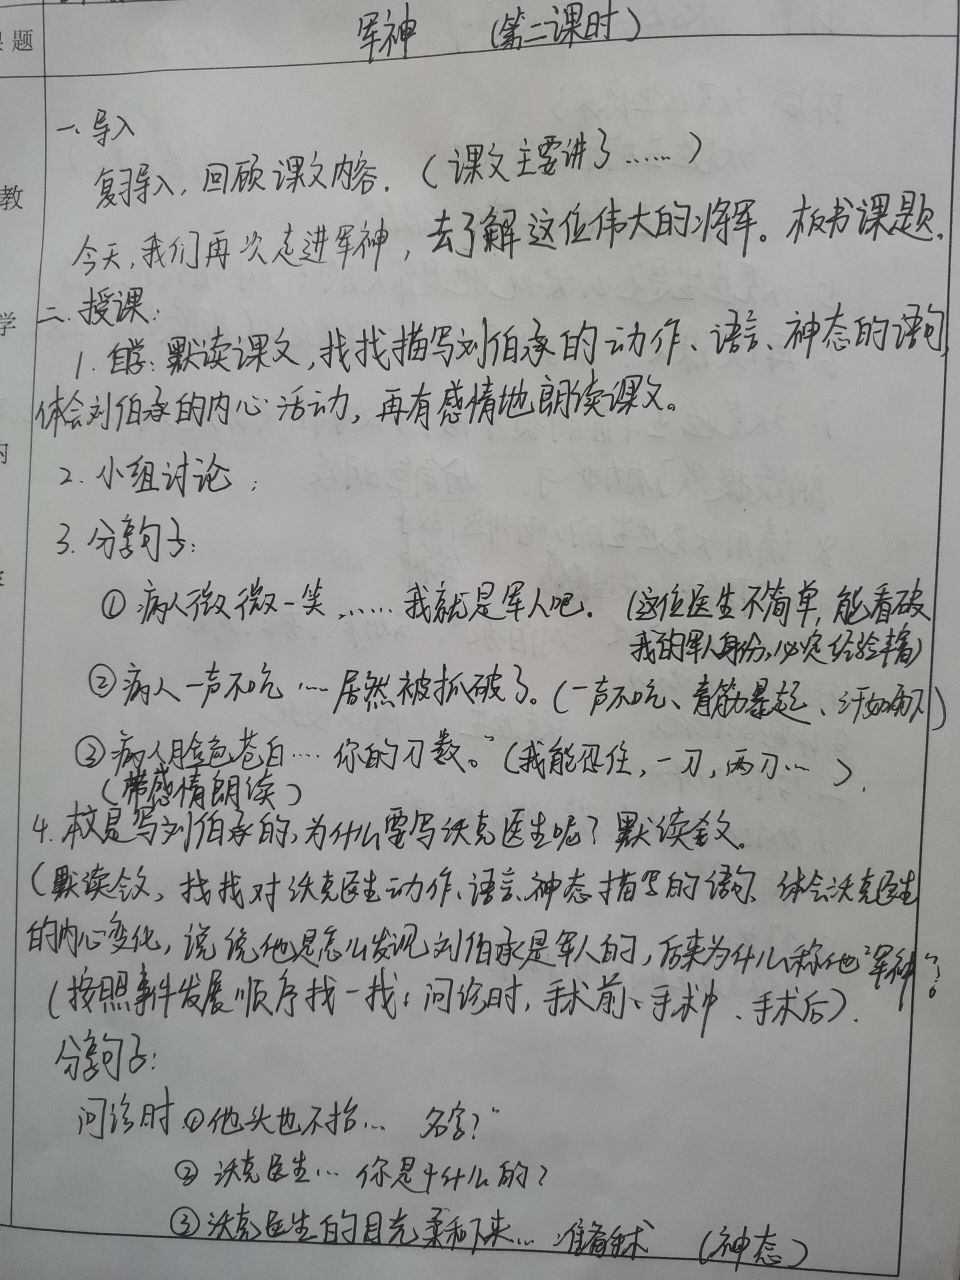 课题
军神 (第二课时)
一、导入
复习导入,回顾课文内容.(课文主要讲了……)
今天,我们再次走进军神,去了解这位伟大的将军。板书课题.
教
学
二.授课:
1.自学:默读课文,找找描写刘伯承的动作、语言、神态的语句,
体会刘伯承的内心活动,再有感情地朗读课文。
内
2.小组讨论:
3.分享句子:
①病人微微一笑……我就是军人吧.(这位医生不简单,能看破
我的军人身份,必定经验丰富)
②病人一声不吭…居然被抓破了。(一声不吭、青筋暴起、汗如雨下)
③病人脸色苍白…·你的刀数。”(我能忍住,一刀,两刀…).
(带感情朗读)
4.本文是写刘伯承的,为什么要写沃克医生呢?默读全文。
(默读全文,找找对沃克医生动作、语言、神态描写的语句、体会沃克医生
的内心变化,说说他是怎么发现刘伯承是军人的,后来为什么称他“军神”?
(按照事件发展顺序找一找:问诊时,手术前、手术中、手术后).
分享句子:
问诊时①他头也不抬…名字?”
②沃克医生…你是干什么的?
③沃克医生的目光柔和下来…准备手术 (神态)